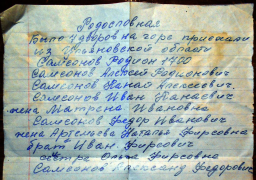 Родословная
Было 4 двора на горе приехали
из Ульяновской области
Самсонов Родион 1760
Самсонов Алексей Родионович
Самсонов Панай Алексеевич,
Самсонов Иван Панаевич
жена Матрёна Ивановна
Самсонов Федор Иванович
жена Наталья Фирсовна
брат Иван Фирсович
сестра Ольга Фирсовна
Самсонов Александр Федорович